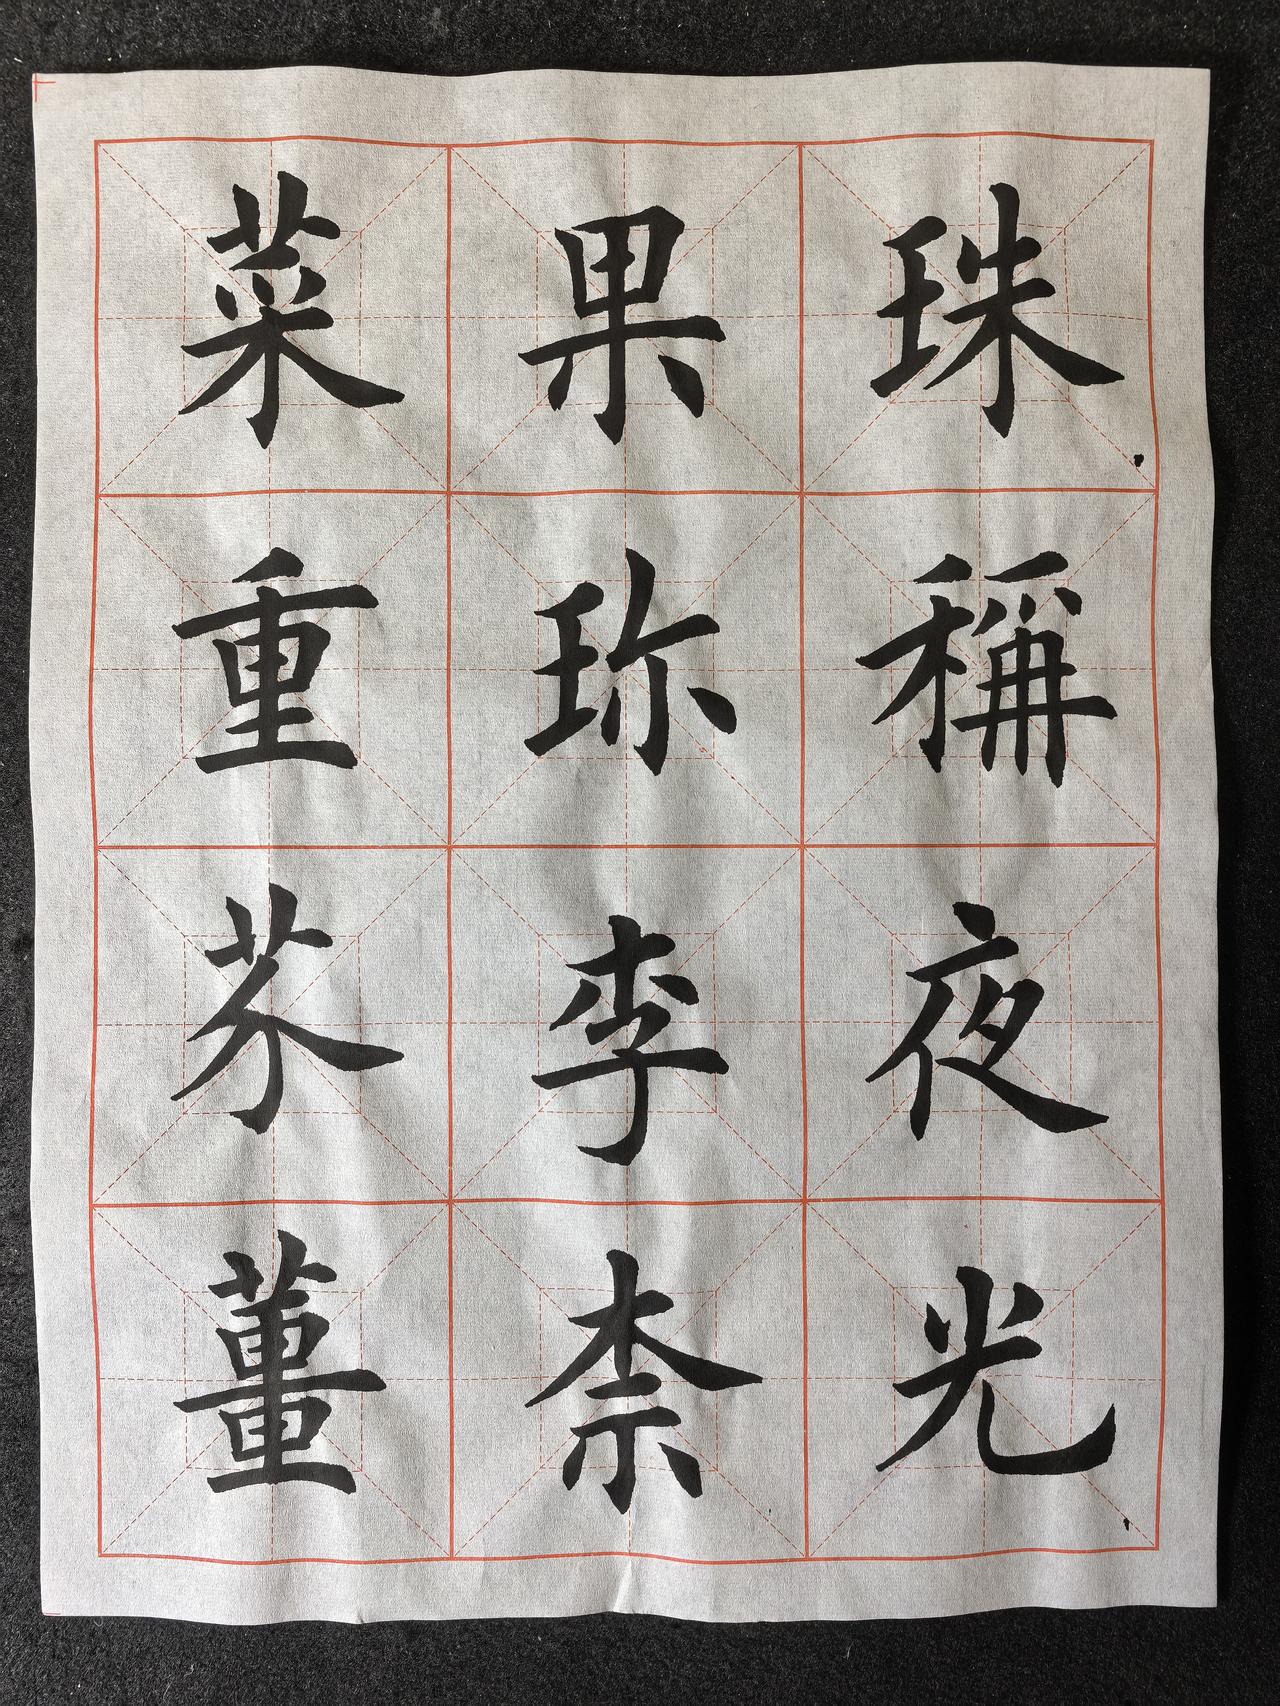 珠稱夜光
果珎李柰
菜重芥薑